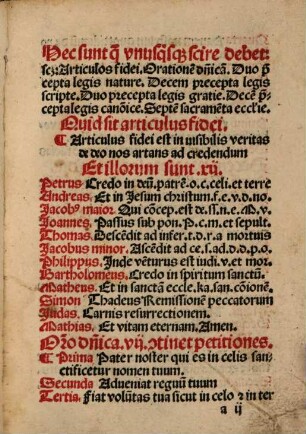 Hec sunt q̃ vnusq̃sq̃ scire debet:
scz Articulos fidei. Orationẽ dñicã. Duo p̃
cepta legis nature. Decem precepta legis
scripte. Duo precepta legis gratie. Decẽ p̃-
cepta legis canõice. Septẽ sacramẽta eccľie.
Quid sit articulus fidei.
¶ Articulus fidei est in uisibilis veritas
de deo nos artans ad credendum
Et illorum sunt .xij.
Petrus. Credo in deũ. patrẽ. o. c. celi. et terre
Andreas. Et in Jesum christum. f. e. v. d. no.
Jacobꝰ maior. Qui cõcep. est de. ss. n e. M. v.
Joannes. Passus sub pon. P. c. m. et sepult.
Thomas. Descẽdit ad infer. t. d. r. a mortuis
Jacobus minor. Ascẽdit ad ce. s. ad. d. d. p. o.
Philippus. Inde vẽturus est iudi. v. et mor.
Bartholomeus. Credo in spiritum sanctũ.
Matheus. Et in sanctã eccle. ka. san. cõionẽ.
Simon Thadeus Remissionẽ peccatorum
Judas. Carnis resurrectionem.
Mathias. Et vitam eternam. Amen.
Orõ dñica. vij. ɔtinet petitiones.
¶ Prima Pater noster qui es in celis san-
ctificetur nomen tuum.
Secunda Adueniat regnũ tuum
Tertia. Fiat volũtas tua sicut in celo ⁊ in ter
a ij